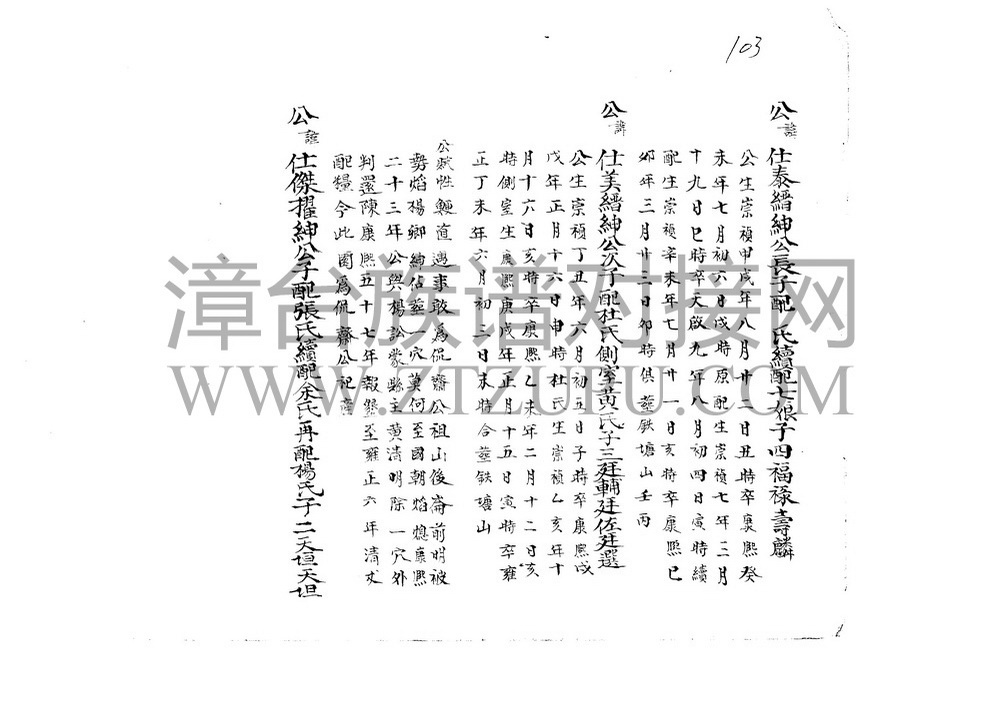 103
公諱仕泰縉紳公長子配 氏續配七娘子四福祿壽麟
公生崇禎甲戌年八月廿二日丑時卒襄熙癸
未年七月初六日戌時原配生崇禎七年三月
十九日巳時卒天啟九年八月初四日寅時續
配生崇禎辛未年七月廿一日亥時卒康熙己
卯年三月廿三日卯時俱葬鉄塘山壬丙
公諱仕美縉紳公次子配杜氏側室黃氏子三廷輔廷佐廷選
公生崇禎丁丑年六月初五日子時卒康熙戊
戊年正月十六日申時杜氏生崇禎乙亥年十
月十六日亥時卒康熙乙未年二月十二日亥
時側室生康熙庚戌年正月十五日寅時卒雍
正丁未年六月初三日未時合葬鉄塘山
公賦性鯁直遇事敢為侃齋公祖山後崙前明被
勢焰楊卿紳佔葬一穴莫何至國朝焰熄康熙
二十三年公與楊訟蒙縣主黃清明除一穴外
判還陳康熙五十七年報墾至雍正六年清丈
配糧今此園為侃齋公祀產
公諱仕傑擢紳公子配張氏續配余氏再配楊氏子二天垣天坦
漳台族谱对接网
WWW.ZTZUPU.COM